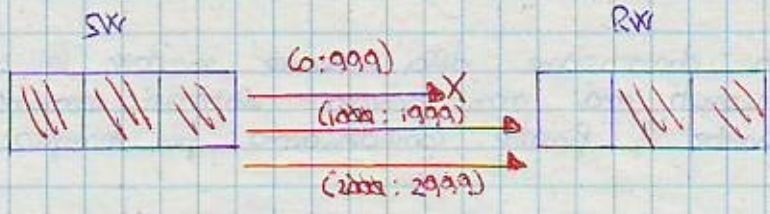 SW RW
(0:999)
X
(1000 : 1999)
(2000 : 2999)